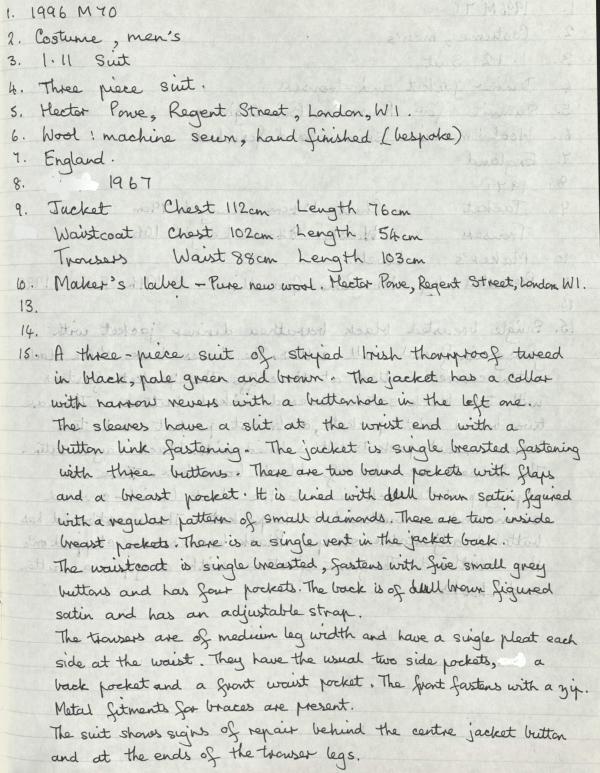 1. 1996 M70
2. Costume, men's
3. 1.11 Suit
4. Three piece suit.
5. Hector Powe, Regent Street, London, W1.
6. Wool: machine sewn, hand finished (bespoke)
7. England.
8. 1967
9. Jacket Chest 112cm Length 76cm
Waistcoat Chest 102cm Length 54cm
Trousers Waist 88cm Length 103cm
10. Maker's label - Pure new wool. Hector Powe, Regent Street, London W1.
13.
14.
15. A three-piece suit of striped Irish thornproof tweed
in black, pale green and brown. The jacket has a collar
with narrow revers with a buttonhole in the left one.
The sleeves have a slit at the wrist end with a
button link fastening. The jacket is single breasted fastening
with three buttons. There are two bound pockets with flaps
and a breast pocket. It is lined with dull brown satin figured
with a regular pattern of small diamonds. There are two inside
breast pockets. There is a single vent in the jacket back.
The waistcoat is single breasted, fastens with five small grey
buttons and has four pockets. The back is of dull brown figured
satin and has an adjustable strap.
The trousers are of medium leg width and have a single pleat each
side at the waist. They have the usual two side pockets, a
back pocket and a front waist pocket. The front fastens with a zip.
Metal fitments for braces are present.
The suit shows signs of repair behind the centre jacket button
and at the ends of the trouser legs.